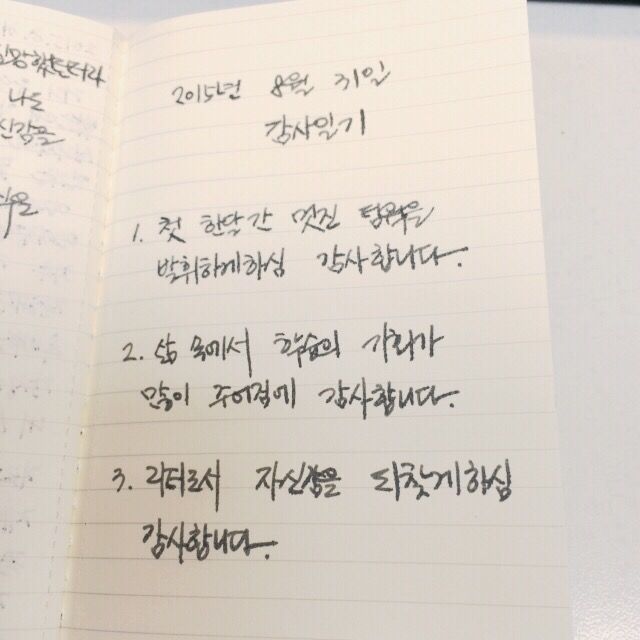 나는
2015년 8월 31일
감사일기
1. 첫 한달간 멋진 팀워크을
발휘하게하심 감사합니다.
2. 삶 속에서 학습의 기회가
많이 주어짐에 감사합니다.
3. 리더로서 자신감을 되찾게하심
감사합니다.